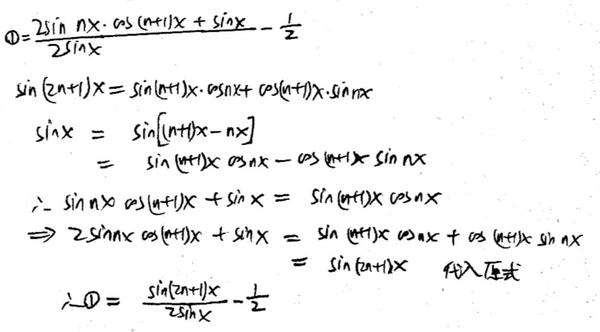 ①= (2sin nx·cos(n+1)x + sinx)/(2sinx) - 1/2
sin(2n+1)x = sin(n+1)x·cosnx + cos(n+1)x·sinnx
sinx = sin[(n+1)x-nx]
= sin(n+1)x cosnx - cos(n+1)x sin nx
∴ sinnx cos(n+1)x + sinx = sin(n+1)x cosnx
⇒ 2sinnx cos(n+1)x + sinx = sin(n+1)x cosnx + cos(n+1)x sin nx
= sin(2n+1)x 代入原式
∴①= sin(2n+1)x/(2sinx) - 1/2